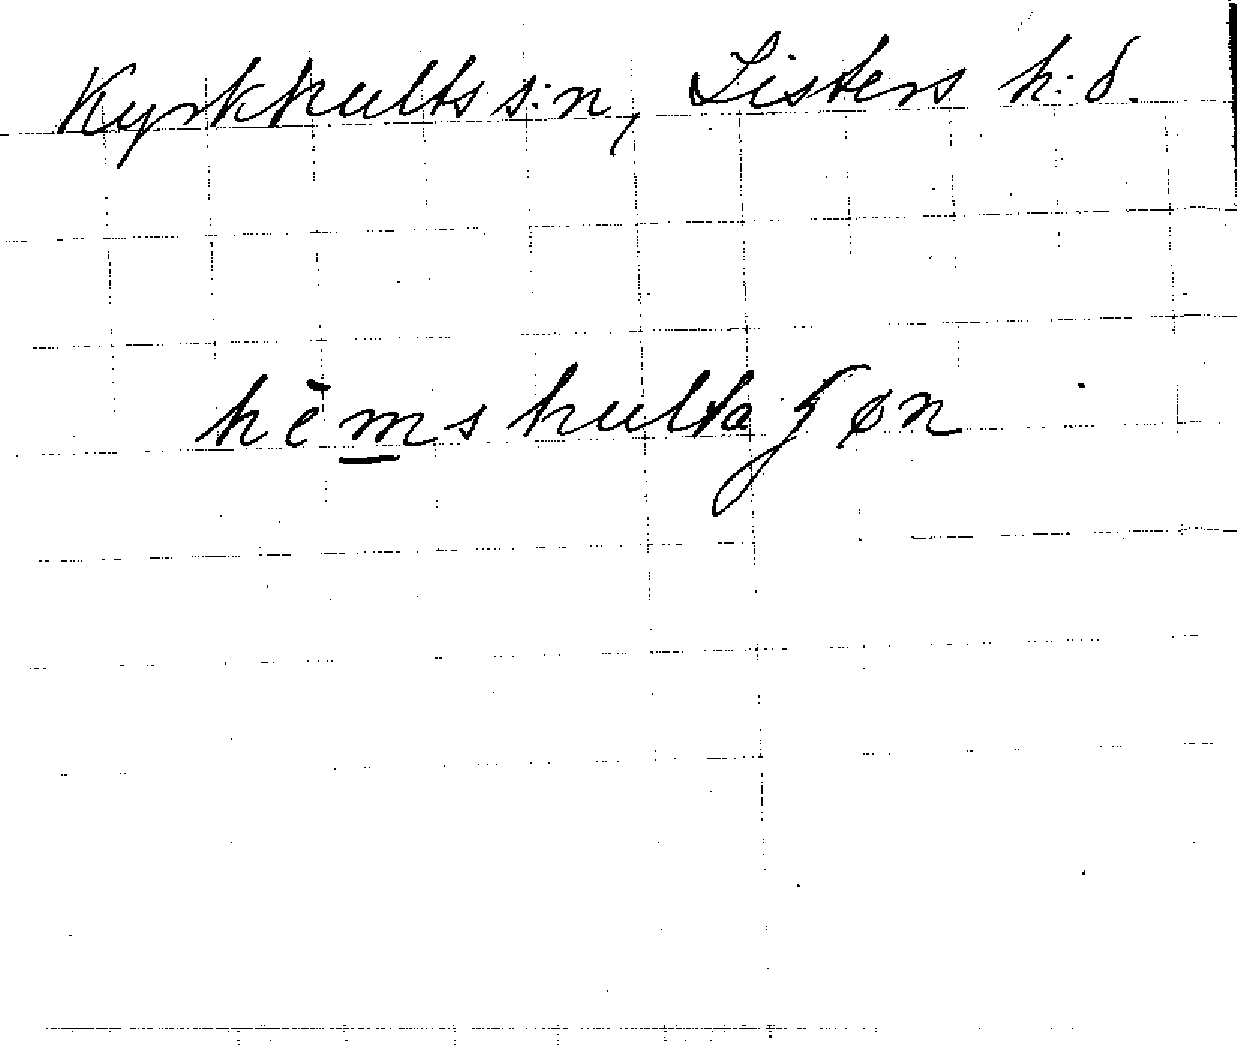 Kyrkhults s:n, Listers h:d.
hèm̲shultaʃøn